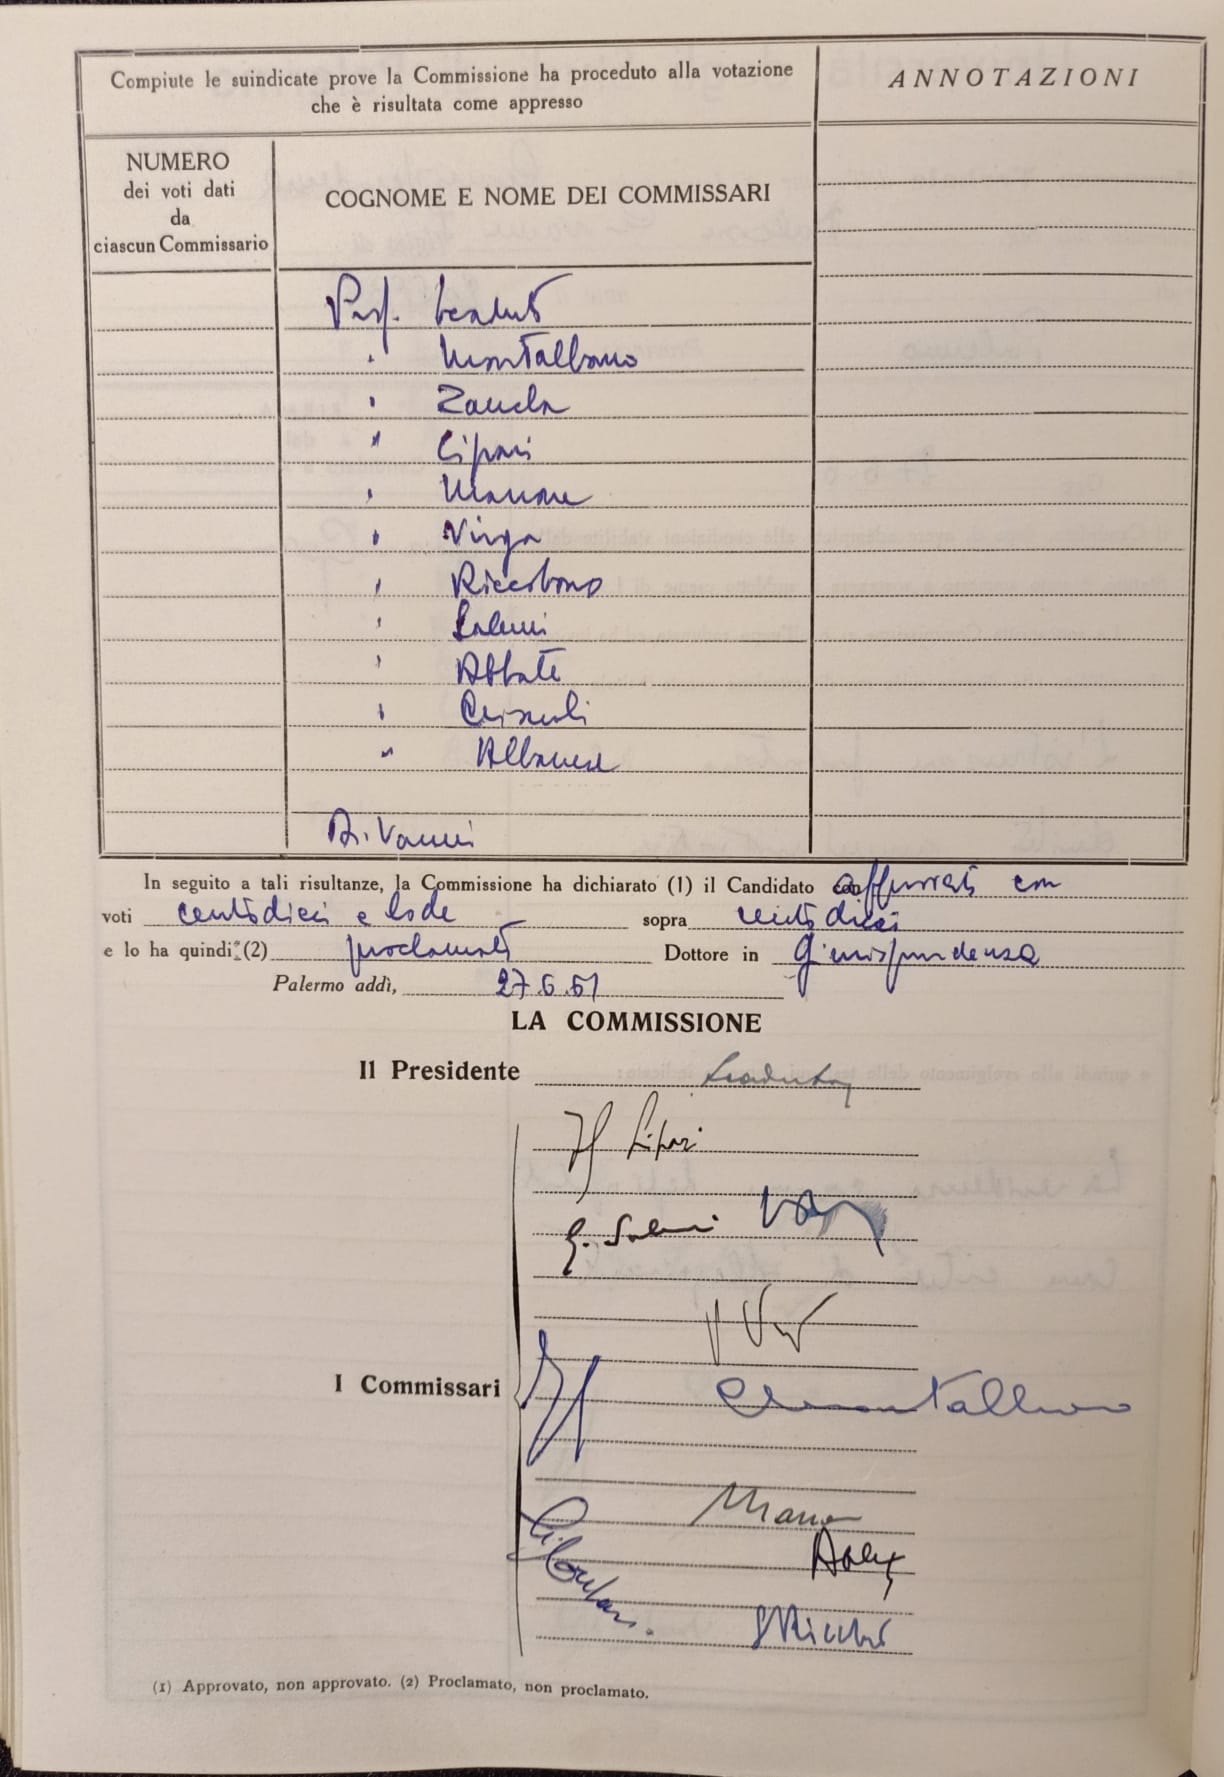 Compiute le suindicate prove la Commissione ha proceduto alla votazione
che è risultata come appresso
ANNOTAZIONI
NUMERO
dei voti dati
da
ciascun Commissario
COGNOME E NOME DEI COMMISSARI
Prof. Scaduto
" Montalbano
"
" Lipari
" Marrone
" Virga
" Riccobono
" Salemi
" Abbate
"
" Albanese
In seguito a tali risultanze, la Commissione ha dichiarato (1) il Candidato approvato con
voti centodieci e lode sopra centodieci
e lo ha quindi: (2) proclamato Dottore in Giurisprudenza
Palermo addì, 27.6.61
LA COMMISSIONE
Il Presidente Scaduto
Lipari
G. Salemi
I Commissari
Montalbano
(1) Approvato, non approvato. (2) Proclamato, non proclamato.